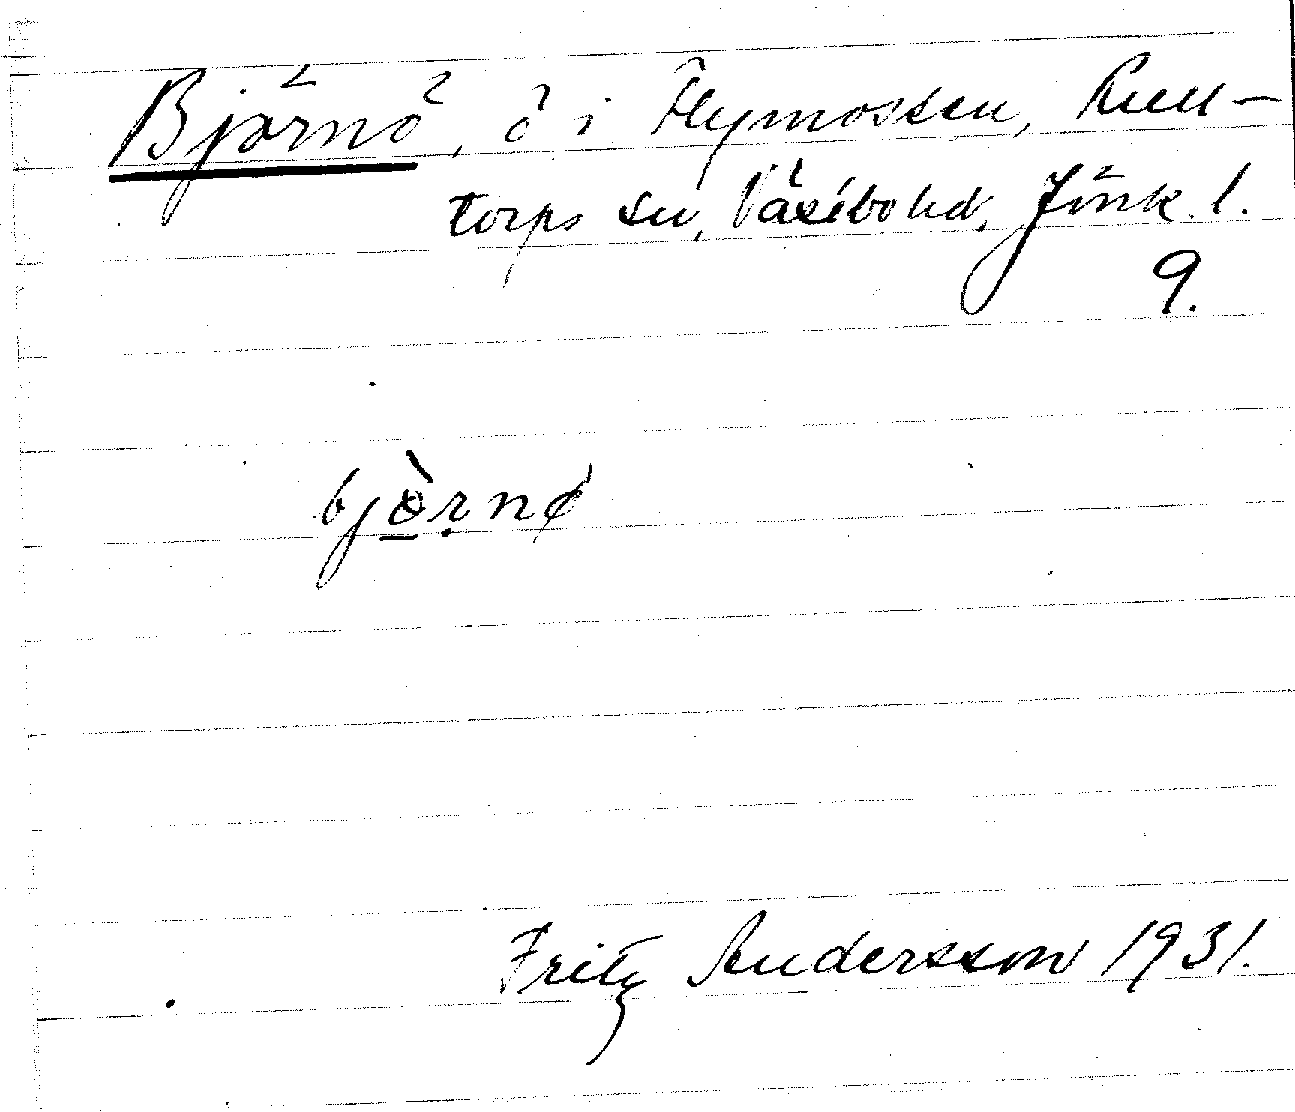 Björnö, ö i Flymossen, Kull-
torps sn, Västbo hd, Jönk. l.
9.
bjö̀rnø
Fritz Andersson 1931.